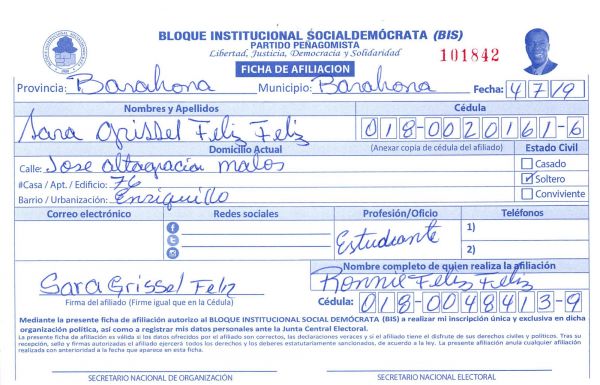 BLOQUE INSTITUCIONAL SOCIALDEMÓCRATA (BIS)
PARTIDO PEÑAGOMISTA
Libertad, Justicia, Democracia y Solidaridad
101842
FICHA DE AFILIACION
Provincia: Barahona Municipio: Barahona Fecha: 4/7/9
Nombres y Apellidos Cédula
Sara Grissel Feliz Feliz 018-0020161-6
Domicilio Actual (Anexar copia de cédula del afiliado) Estado Civil
Calle: Jose altagracion matos Casado
#Casa / Apt. / Edificio: 76 Soltero
Barrio / Urbanización: Enriquillo Conviviente
Correo electrónico Redes sociales Profesión/Oficio Teléfonos
Estudiante 1)
2)
Nombre completo de quien realiza la afiliación
Sara Grissel Feliz Ronnie Feliz Feliz
Firma del afiliado (Firme igual que en la Cédula) Cédula: 018-0048413-9
Mediante la presente ficha de afiliación autorizo al BLOQUE INSTITUCIONAL SOCIAL DEMÓCRATA (BIS) a realizar mi inscripción única y exclusiva en dicha
organización política, así como a registrar mis datos personales ante la Junta Central Electoral.
La presente ficha de afiliación es válida si los datos ofrecidos por el afiliado son correctos, las declaraciones veraces y si el afiliado tiene el disfrute de sus derechos civiles y políticos. Tras su
recepción, sello y firmas autorizadas el afiliado ejercerá todos los derechos y los deberes estatutariamente sancionados, de acuerdo a la ley. La presente afiliación anula cualquier afiliación
realizada con anterioridad a la fecha que aparece en esta ficha.
SECRETARIO NACIONAL DE ORGANIZACIÓN SECRETARIO NACIONAL ELECTORAL